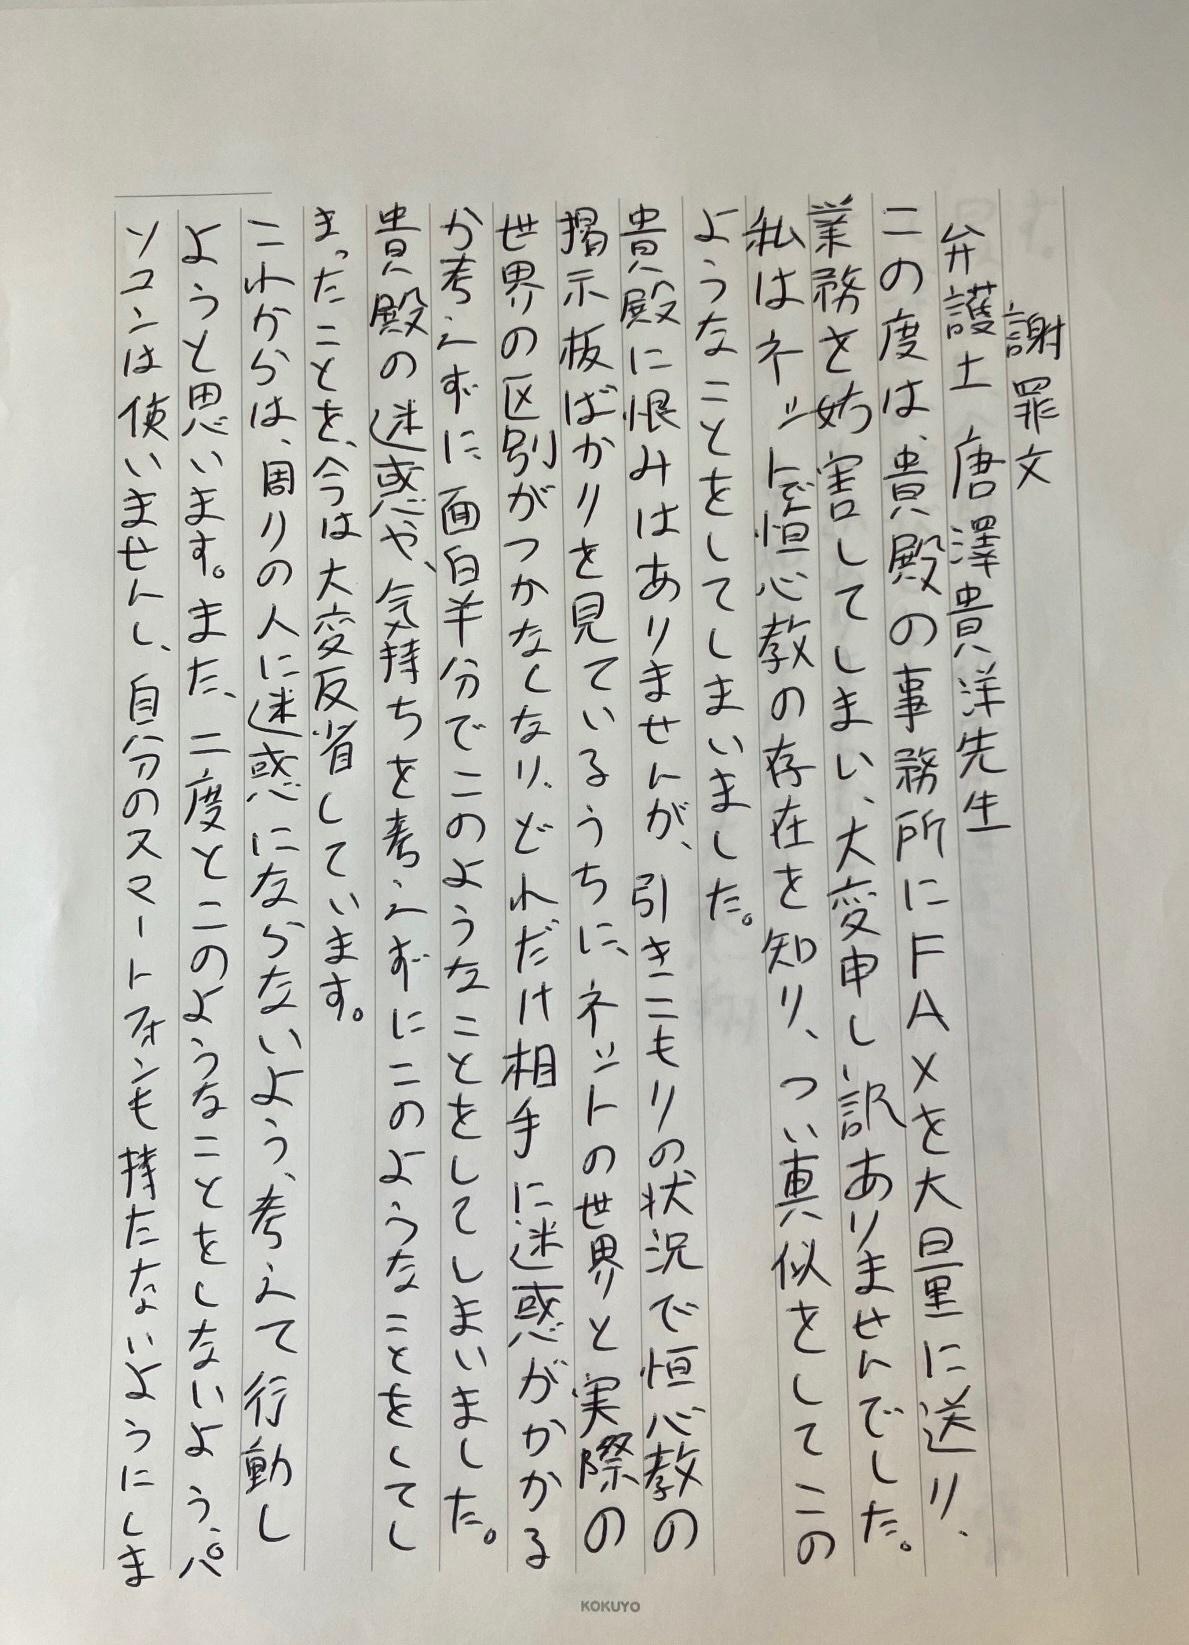 謝罪文
弁護士 唐澤貴洋先生
この度は、貴殿の事務所にFAXを大量に送り、
業務を妨害してしまい、大変申し訳ありませんでした。
私はネットで恒心教の存在を知り、つい真似をしてこの
ようなことをしてしまいました。
貴殿に恨みはありませんが、引きこもりの状況で恒心教の
掲示板ばかりを見ているうちに、ネットの世界と実際の
世界の区別がつかなくなり、どれだけ相手に迷惑がかかる
か考えずに面白半分でこのようなことをしてしまいました。
貴殿の迷惑や、気持ちを考えずにこのようなことをしてし
まったことを、今は大変反省しています。
これからは、周りの人に迷惑にならないよう、考えて行動し
ようと思います。また、二度とこのようなことをしないよう、パ
ソコンは使いませんし、自分のスマートフォンも持たないようにしま
KOKUYO